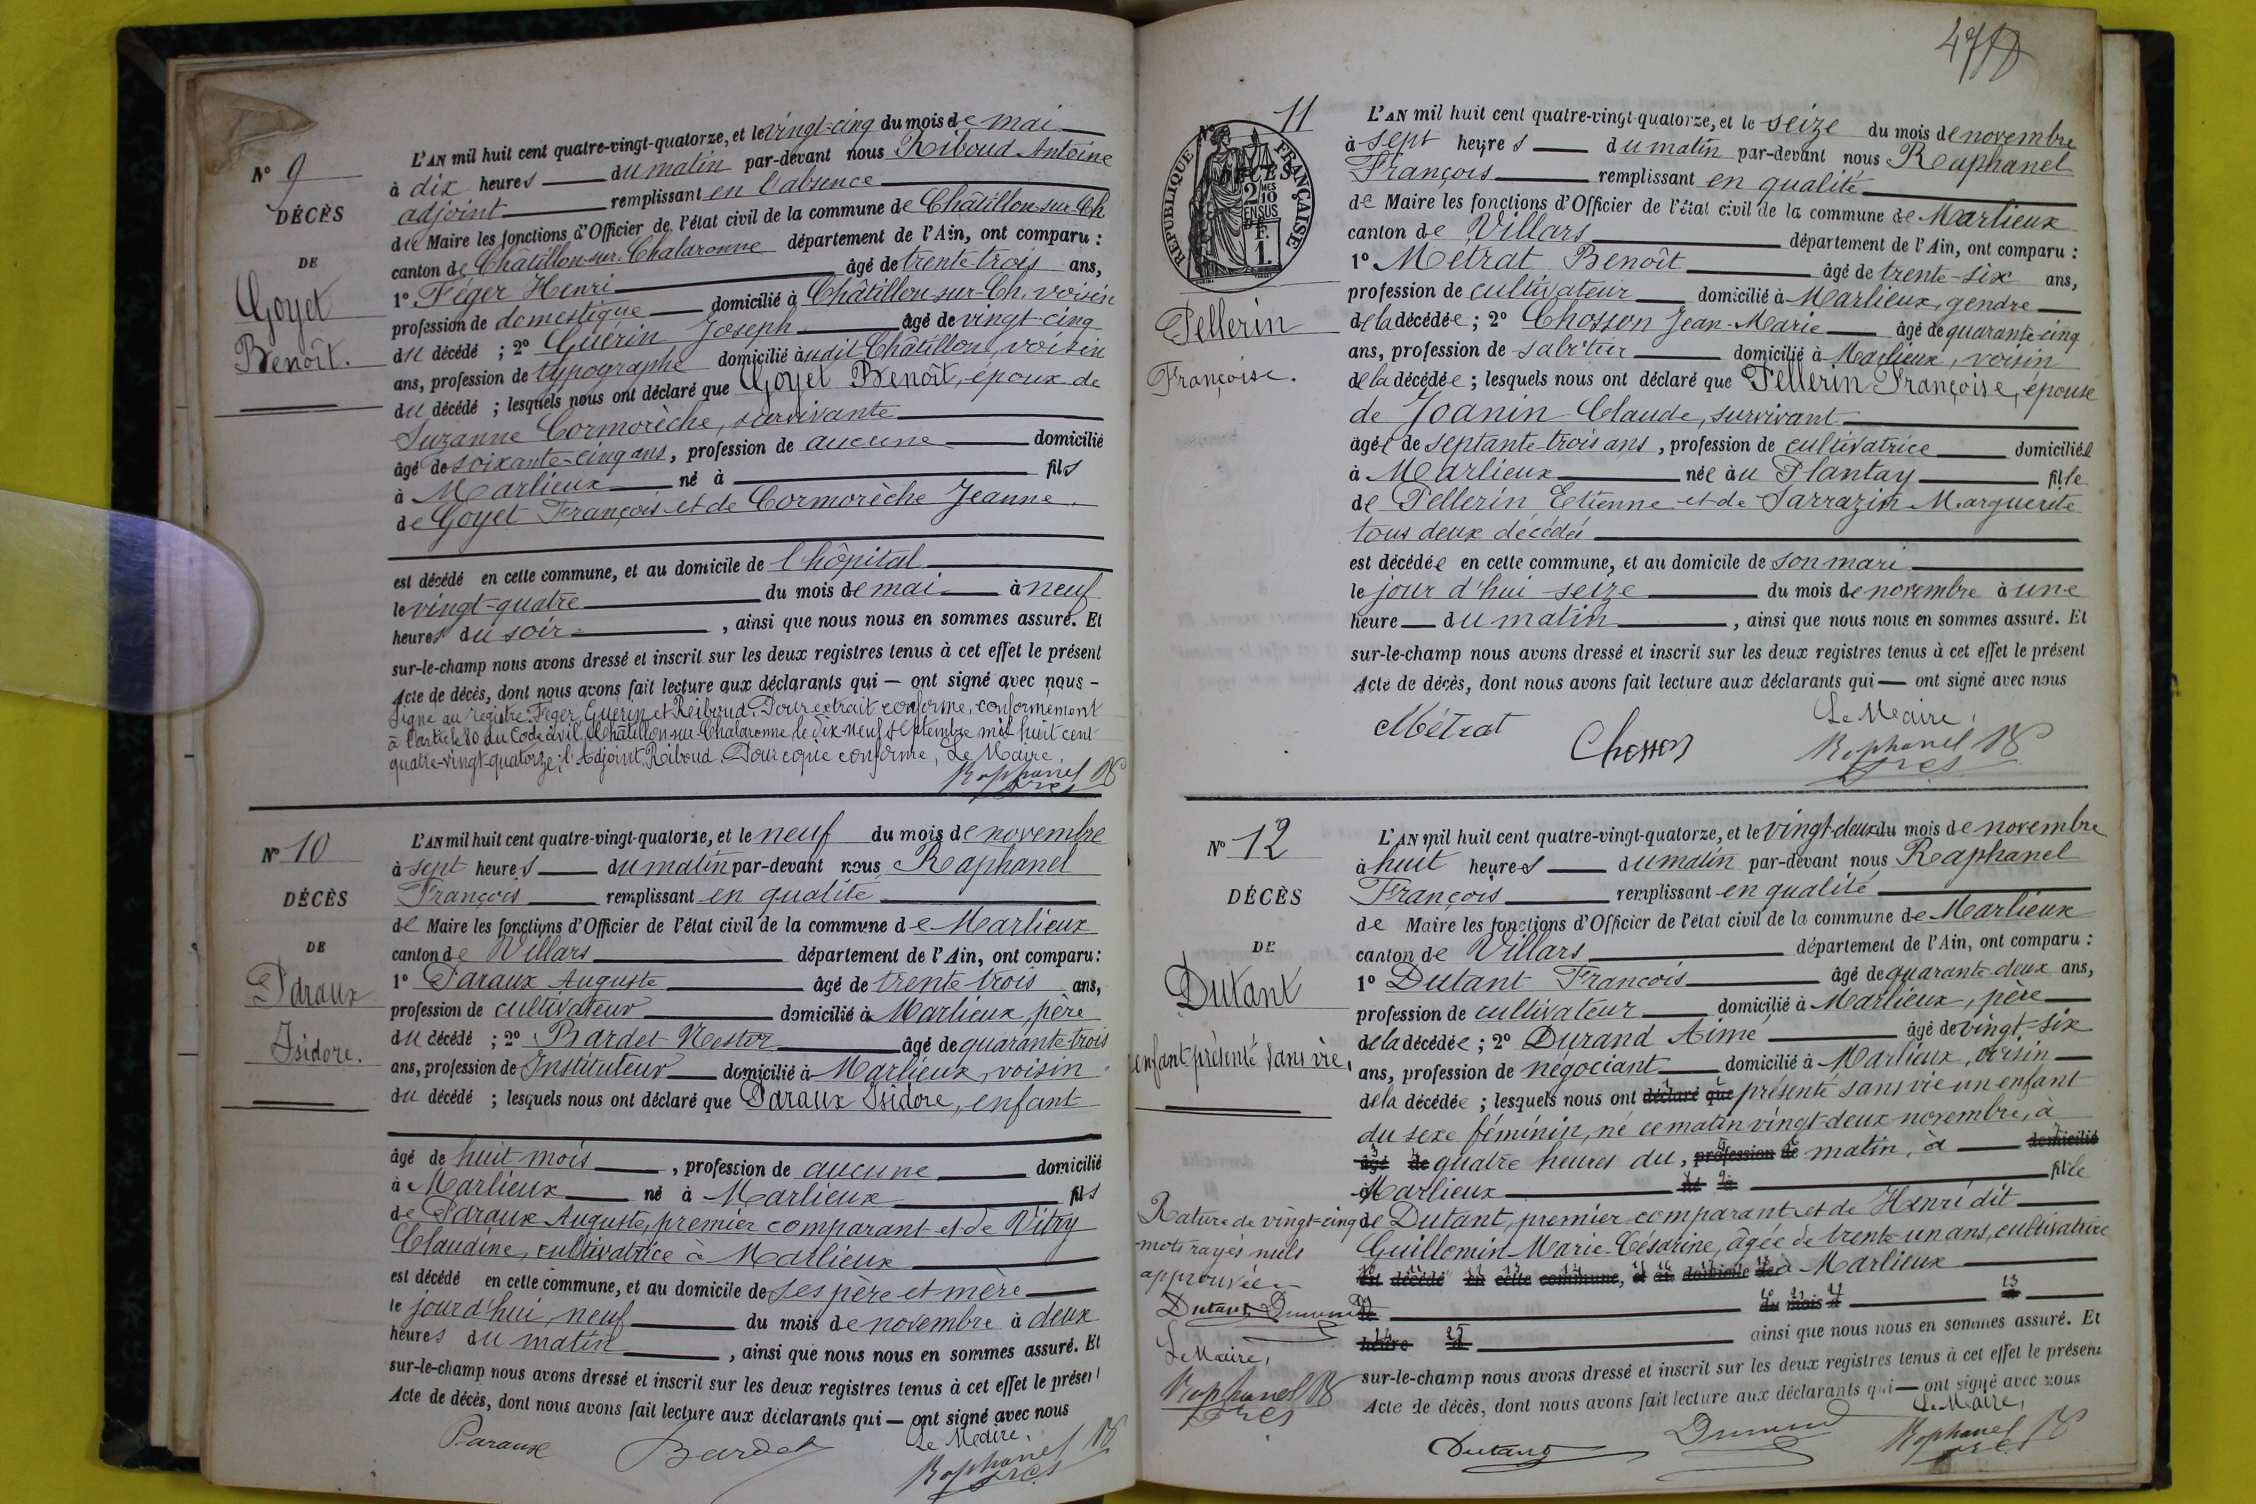 N° 9
DÉCÈS
DE
Goyet
Benoît.
L'AN mil huit cent quatre-vingt-quatorze, et le vingt-cinq du mois de mai
à dix heures du matin par-devant nous Riboud Antoine
adjoint remplissant en l'absence
du Maire les fonctions d'Officier de l'état civil de la commune de Châtillon-sur-Ch
canton de Châtillon-sur-Chalaronne département de l'Ain, ont comparu :
1° Féger Henri âgé de trente-trois ans,
profession de domestique domicilié à Châtillon-sur-Ch. voisin
du décédé ; 2° Guérin Joseph âgé de vingt-cinq
ans, profession de typographe domicilié audit Châtillon, voisin
du décédé ; lesquels nous ont déclaré que Goyet Benoît, époux de
Suzanne Cormorèche, survivante
âgé de soixante-cinq ans, profession de aucune domicilié
à Marlieux né à fils
de Goyet François et de Cormorèche Jeanne
est décédé en cette commune, et au domicile de l'hôpital
le vingt-quatre du mois de mai à neuf
heures du soir , ainsi que nous nous en sommes assuré. Et
sur-le-champ nous avons dressé et inscrit sur les deux registres tenus à cet effet le présent
Acte de décès, dont nous avons fait lecture aux déclarants qui — ont signé avec nous -
Signé au registre: Féger, Guérin et Riboud. Pour extrait conforme, conformément
à l'article 80 du Code civil, Châtillon-sur-Chalaronne, le dix-neuf septembre mil huit cent
quatre-vingt-quatorze; l'Adjoint, Riboud. Pour copie conforme, Le Maire,
Raphanel
N° 10
DÉCÈS
DE
Paraux
Isidore.
L'AN mil huit cent quatre-vingt-quatorze, et le neuf du mois de novembre
à sept heures du matin par-devant nous Raphanel
François remplissant en qualité
de Maire les fonctions d'Officier de l'état civil de la commune de Marlieux
canton de Villars département de l'Ain, ont comparu :
1° Paraux Auguste âgé de trente trois ans,
profession de cultivateur domicilié à Marlieux, père
du décédé ; 2° Bardet Nestor âgé de quarante-trois
ans, profession de Instituteur domicilié à Marlieux, voisin
du décédé ; lesquels nous ont déclaré que Paraux Isidore, enfant
âgé de huit mois , profession de aucune domicilié
à Marlieux né à Marlieux fils
de Paraux Auguste, premier comparant et de Vitry
Claudine, cultivatrice à Marlieux
est décédé en cette commune, et au domicile de ses père et mère
le jour d'hui neuf du mois de novembre à deux
heures du matin , ainsi que nous nous en sommes assuré. Et
sur-le-champ nous avons dressé et inscrit sur les deux registres tenus à cet effet le présent
Acte de décès, dont nous avons fait lecture aux déclarants qui — ont signé avec nous
Paraux Bardet Le Maire,
Raphanel
47
11
RÉPUBLIQUE FRANÇAISE
Pellerin
Françoise.
L'AN mil huit cent quatre-vingt-quatorze, et le seize du mois de novembre
à sept heures du matin par-devant nous Raphanel
François remplissant en qualité
de Maire les fonctions d'Officier de l'état civil de la commune de Marlieux
canton de Villars département de l'Ain, ont comparu :
1° Métrat Benoît âgé de trente-six ans,
profession de cultivateur domicilié à Marlieux, gendre
de la décédée ; 2° Chosson Jean-Marie âgé de quarante-cinq
ans, profession de sabotier domicilié à Marlieux, voisin
de la décédée ; lesquels nous ont déclaré que Pellerin Françoise, épouse
de Joanin Claude, survivant
âgée de septante-trois ans, profession de cultivatrice domiciliée
à Marlieux née au Plantay fille
de Pellerin Etienne et de Sarrazin Marguerite
tous deux décédés
est décédée en cette commune, et au domicile de son mari
le jour d'hui seize du mois de novembre à une
heure du matin , ainsi que nous nous en sommes assuré. Et
sur-le-champ nous avons dressé et inscrit sur les deux registres tenus à cet effet le présent
Acte de décès, dont nous avons fait lecture aux déclarants qui — ont signé avec nous
Métrat Chosson Le Maire,
Raphanel
N° 12
DÉCÈS
DE
Dutant
enfant présenté sans vie,
L'AN mil huit cent quatre-vingt-quatorze, et le vingt-deux du mois de novembre
à huit heures du matin par-devant nous Raphanel
François remplissant en qualité
de Maire les fonctions d'Officier de l'état civil de la commune de Marlieux
canton de Villars département de l'Ain, ont comparu :
1° Dutant François âgé de quarante-deux ans,
profession de cultivateur domicilié à Marlieux, père
de la décédée ; 2° Durand Aimé âgé de vingt-six
ans, profession de négociant domicilié à Marlieux, voisin
de la décédée ; lesquels nous ont déclaré que présenté sans vie un enfant
du sexe féminin, né ce matin vingt-deux novembre, à
âgé de quatre heures du, profession de matin, à domicilié
à Marlieux né à fille
de Dutant, premier comparant et de Henri dit
Guillomin Marie-Césarine, âgée de trente-un ans, cultivatrice
est décédé en cette commune, et au domicile de à Marlieux
le du mois d à
heure d ainsi que nous nous en sommes assuré. Et
sur-le-champ nous avons dressé et inscrit sur les deux registres tenus à cet effet le présent
Acte de décès, dont nous avons fait lecture aux déclarants qui — ont signé avec nous
Rature de vingt-cinq
mots rayés nuls
approuvée
Dutant Durand
Le Maire,
Raphanel
Dutant Durand Le Maire,
Raphanel